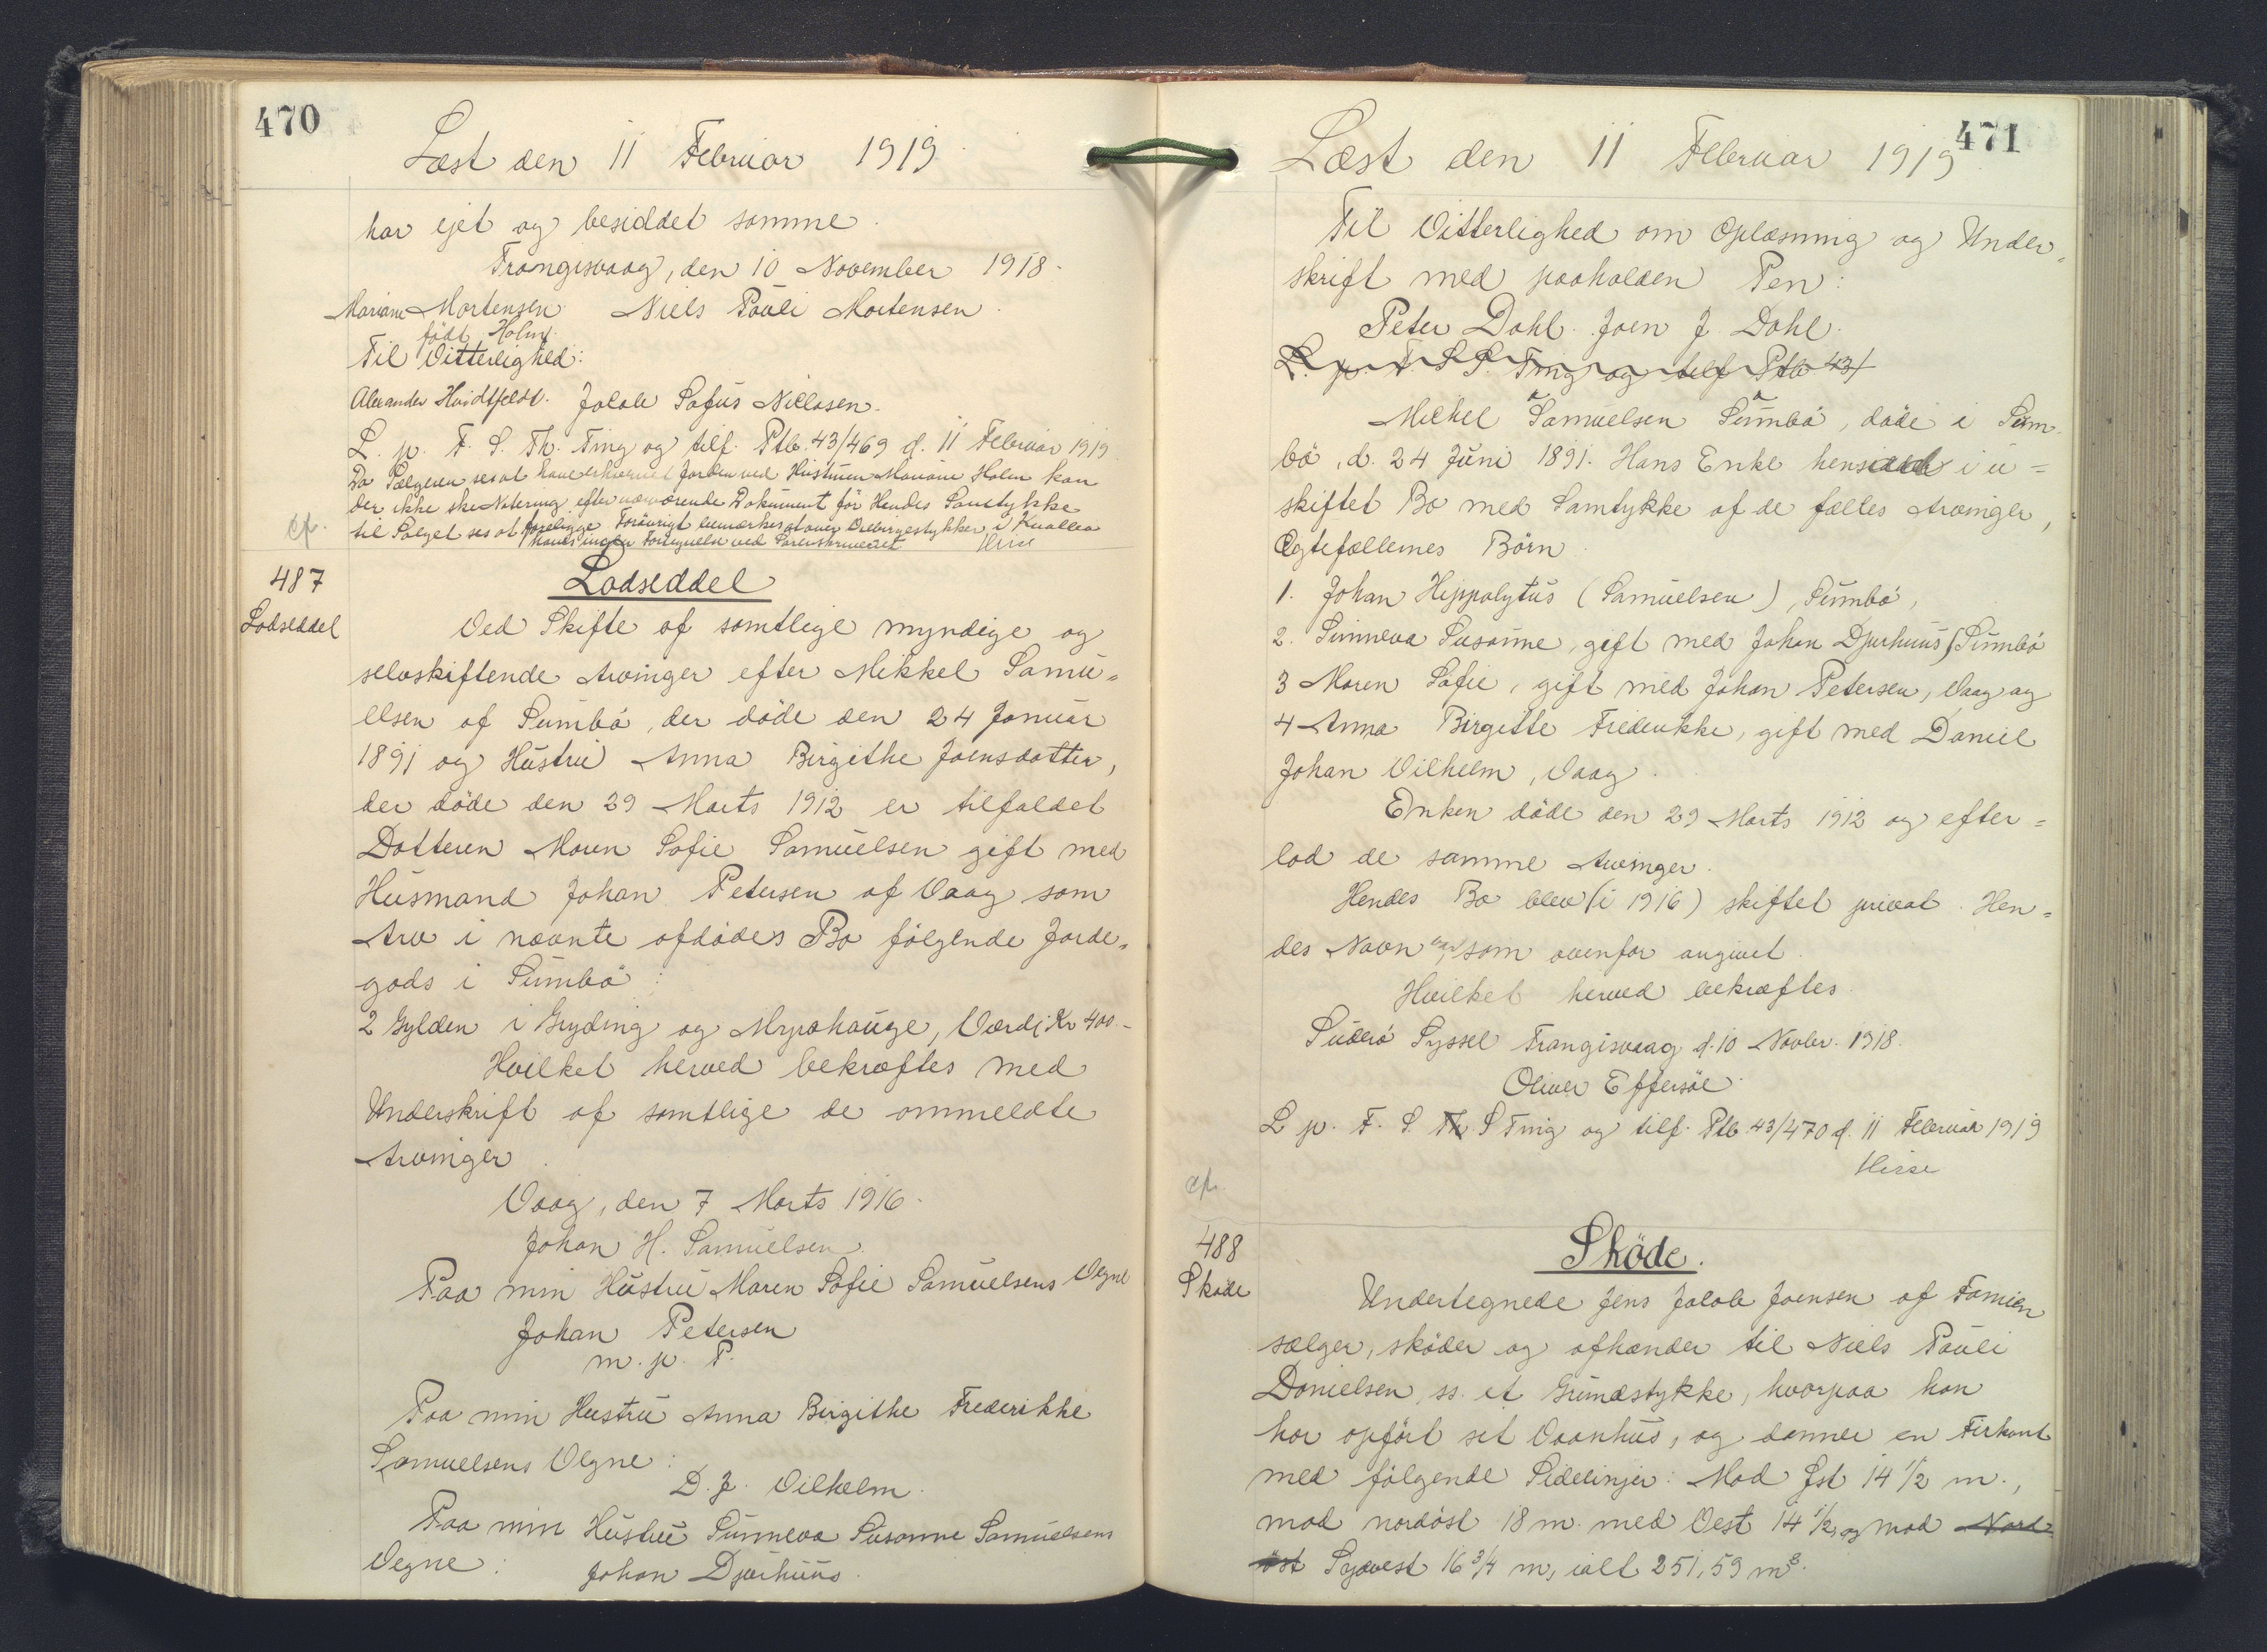 470
Læst den 11 Februar 1919
har ejet og besiddet samme.
Trangisvaag, den 10 November 1918.
Mariane Mortensen Niels Pauli Mortensen.
født Holm.
Til Vitterlighed:
Alexander Hvidtfeldt. Jakob Sofus Nielsen.
L. p. F. S. Th. Ting og tilf. Ptb. 43/469 d. 11 Februar 1919
Da Sælgeren ses at have erhvervet Jorden ved Hustruen Mariane Holm kan
der ikke ske Notering efter nærværende Dokument før Hendes Samtykke
til Salget ses at foreligge Forøvrigt bemærkes at over i
haves ingen ved
Cfr.
487
Lodseddel
Lodseddel
Ved Skifte af samtlige myndige og
selvskiftende Arvinger efter Mikkel Samu=
elsen af Sumbø, der døde den 24 Januar
1891 og Hustru Anna Birgithe Joensdatter,
der døde den 29 Marts 1912 er tilfaldet
Datteren Maren Sofie Samuelsen gift med
Husmand Johan Petersen af Vaag som
Arv i nævnte afdødes Bo følgende Jorde=
gods i Sumbø:
2 Gylden i Gryding og Myrahauge, Værdi Kr 400.-
Hvilket herved bekræftes med
Underskrift af samtlige de ommeldte
Arvinger.
Vaag, den 7 Marts 1916.
Johan H. Samuelsen.
Paa min Hustru Maren Sofie Samuelsens Vegne
Johan Petersen
m. p. P.
Paa min Hustru Anna Birgithe Frederikke
Samuelsens Vegne:
D. J. Vilhelm.
Paa min Hustru Sunneva Susanne Samuelsens
Vegne: Johan Djurhuus.
471
Læst den 11 Februar 1919
Til Vitterlighed om Oplæsning og Under=
skrift med paaholden Pen:
Peter Dahl. Joen J. Dahl.
L. p. F. S S. Ting og tilf Ptb 43/
Mikkel Samuelsen Sumbø, døde i Sum
bø, d. 24 Juni 1891. Hans Enke hensidder i u=
skiftet Bo med Samtykke af de fælles Arvinger,
Ægtefællernes Børn
1. Johan Hippolytus (Samuelsen), Sumbø,
2. Sunneva Susanne, gift med Johan Djurhuus, Sumbø
3 Maren Sofie, gift med Johan Petersen, Vaag og
4 Anna Birgitte Frederikke, gift med Daniel
Johan Vilhelm, Vaag.
Enken døde den 29 Marts 1912 og efter=
lod de samme Arvinger.
Hendes Bo blev (i 1916) skiftet privat. Hen=
des Navn var som ovenfor angivet.
Hvilket herved bekræftes.
Suderø Syssel Trangisvaag d. 10 Novbr. 1918.
Oliver Effersøe
L p. F. S. Th S Ting og tilf. Ptb 43/470 d. 11 Februar 1919
Cfr.
488
Skøde
Skøde.
Undertegnede Jens Jakob Joensen af Famien
sælger, skøder og afhænder til Niels Pauli
Danielsen, ss. et Grundstykke, hvorpaa han
har opført sit Vaanhus, og danner en Firkant
med følgende Sidelinjer: Mod Øst 14 1/2 m.,
mod nordøst 18 m. med Vest 14 1/2, og mod Nord=
øst Sydvest 16 3/4 m, ialt 251,59 m².